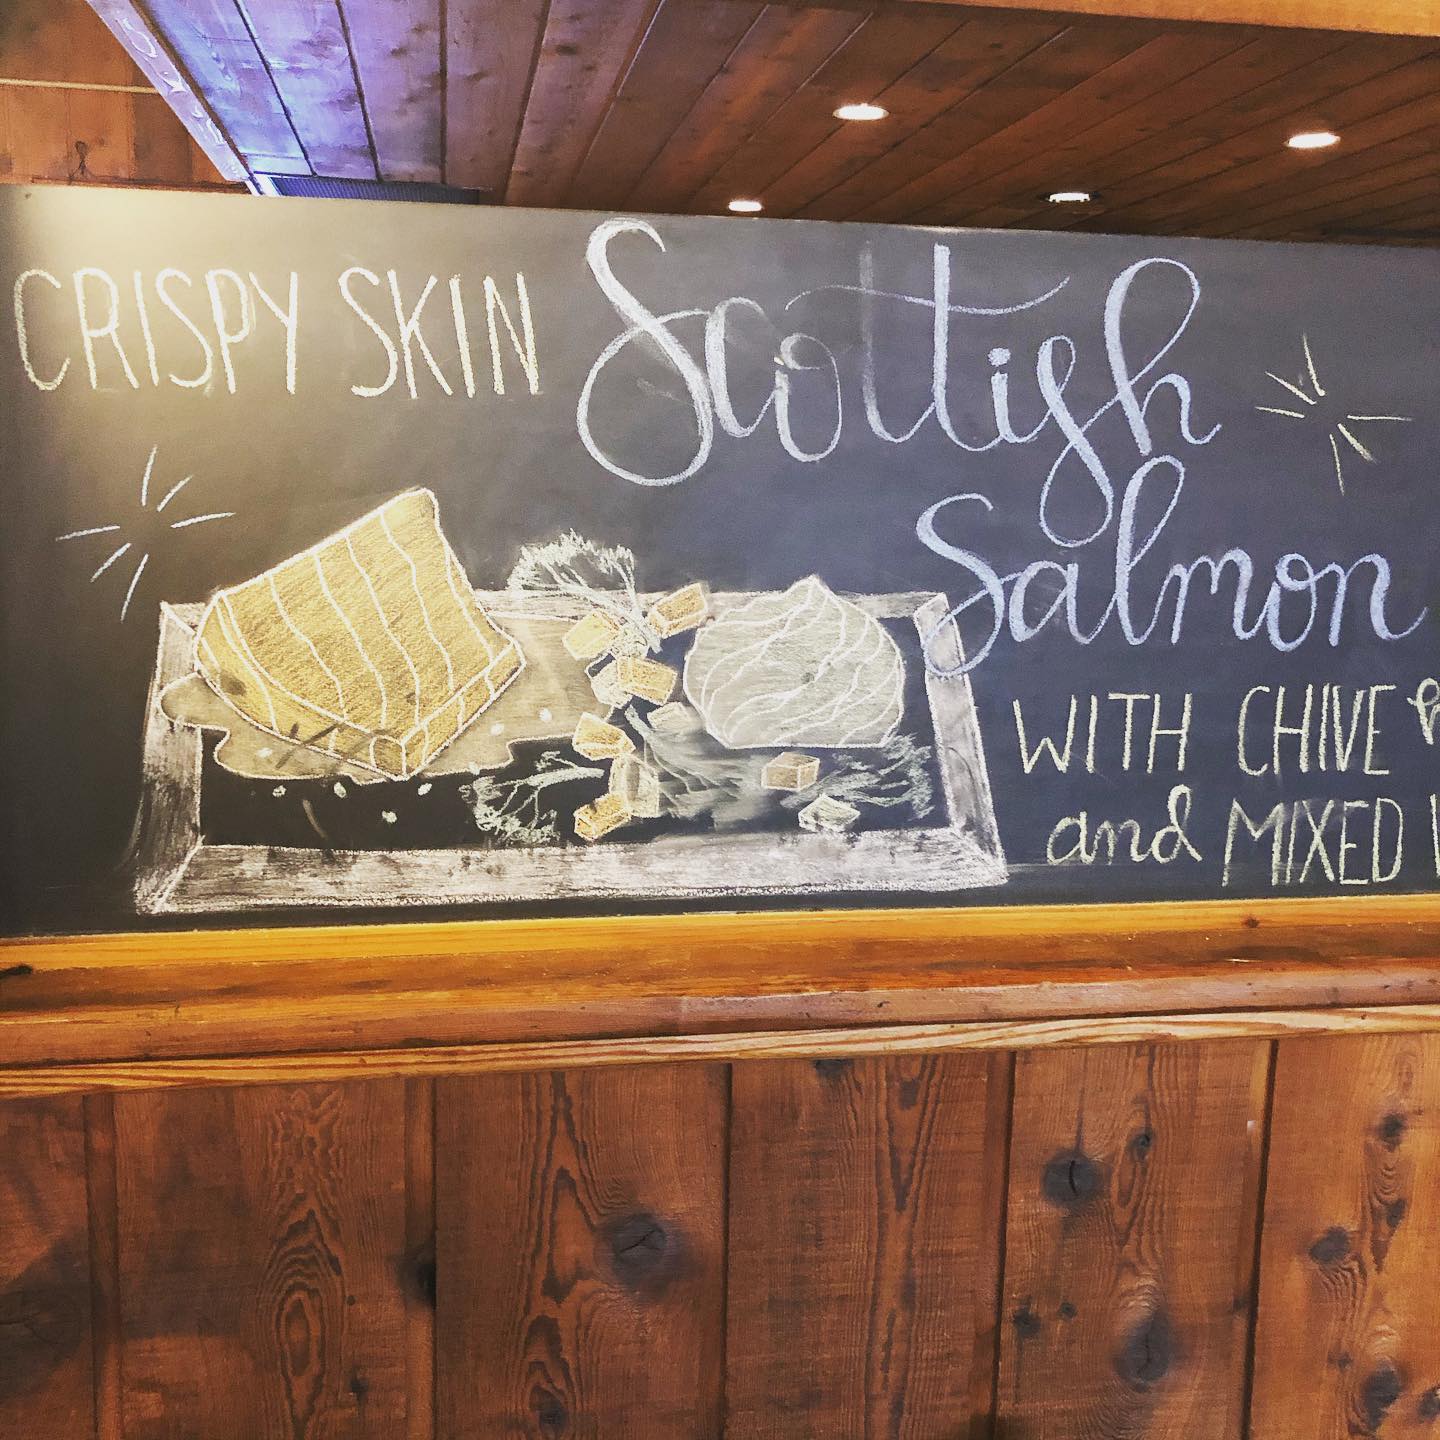 CRISPY SKIN Scottish
Salmon
WITH CHIVE
and MIXED